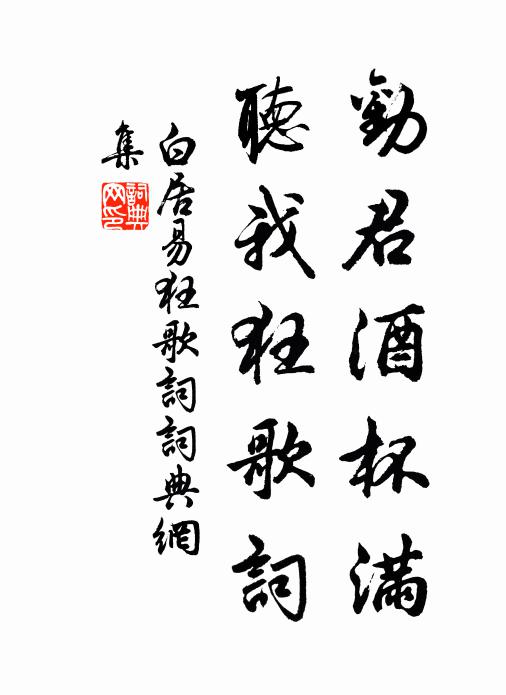 勸君酒杯滿
聽我狂歌詞
白居易狂歌詞詞典網
集
詞典网印